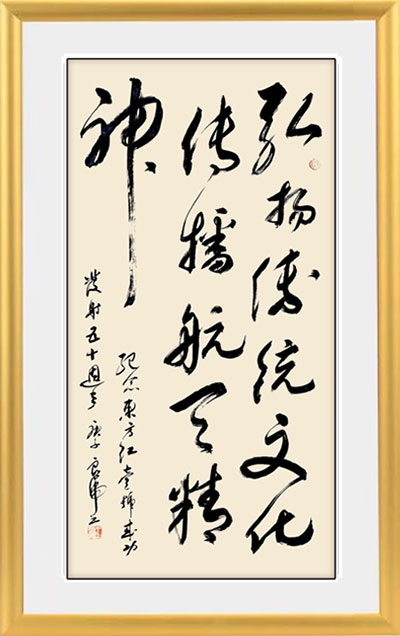 弘扬传统文化
传播航天精
神
纪念东方红壹号成功
发射五十周年 庚子